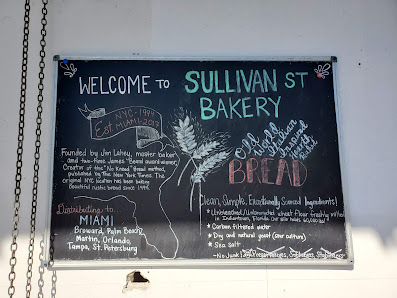 WELCOME TO SULLIVAN ST
BAKERY
NYC-1994
Est MIAMI-2013
Founded by Jim Lahey, master baker
and two-time James "Beard award winner,
Creator of the "No Knead" Bread method,
published by The New York Times. The
original NYC location has been baking
Beautiful rustic bread since 1994.
Distributing to
MIAMI
Broward, Palm Beach,
Martin, Orlando,
Tampa, St. Petersburg
Old World
Italian
BREAD
Clean, Simple, Exceptionally Sourced Ingredients!
* Unbleached/Unbromated wheat flour freshly milled
in Indiantown, Florida
* Carbon filtered water
* Dry and natural yeast (sour culture)
* Sea salt
- No Junk